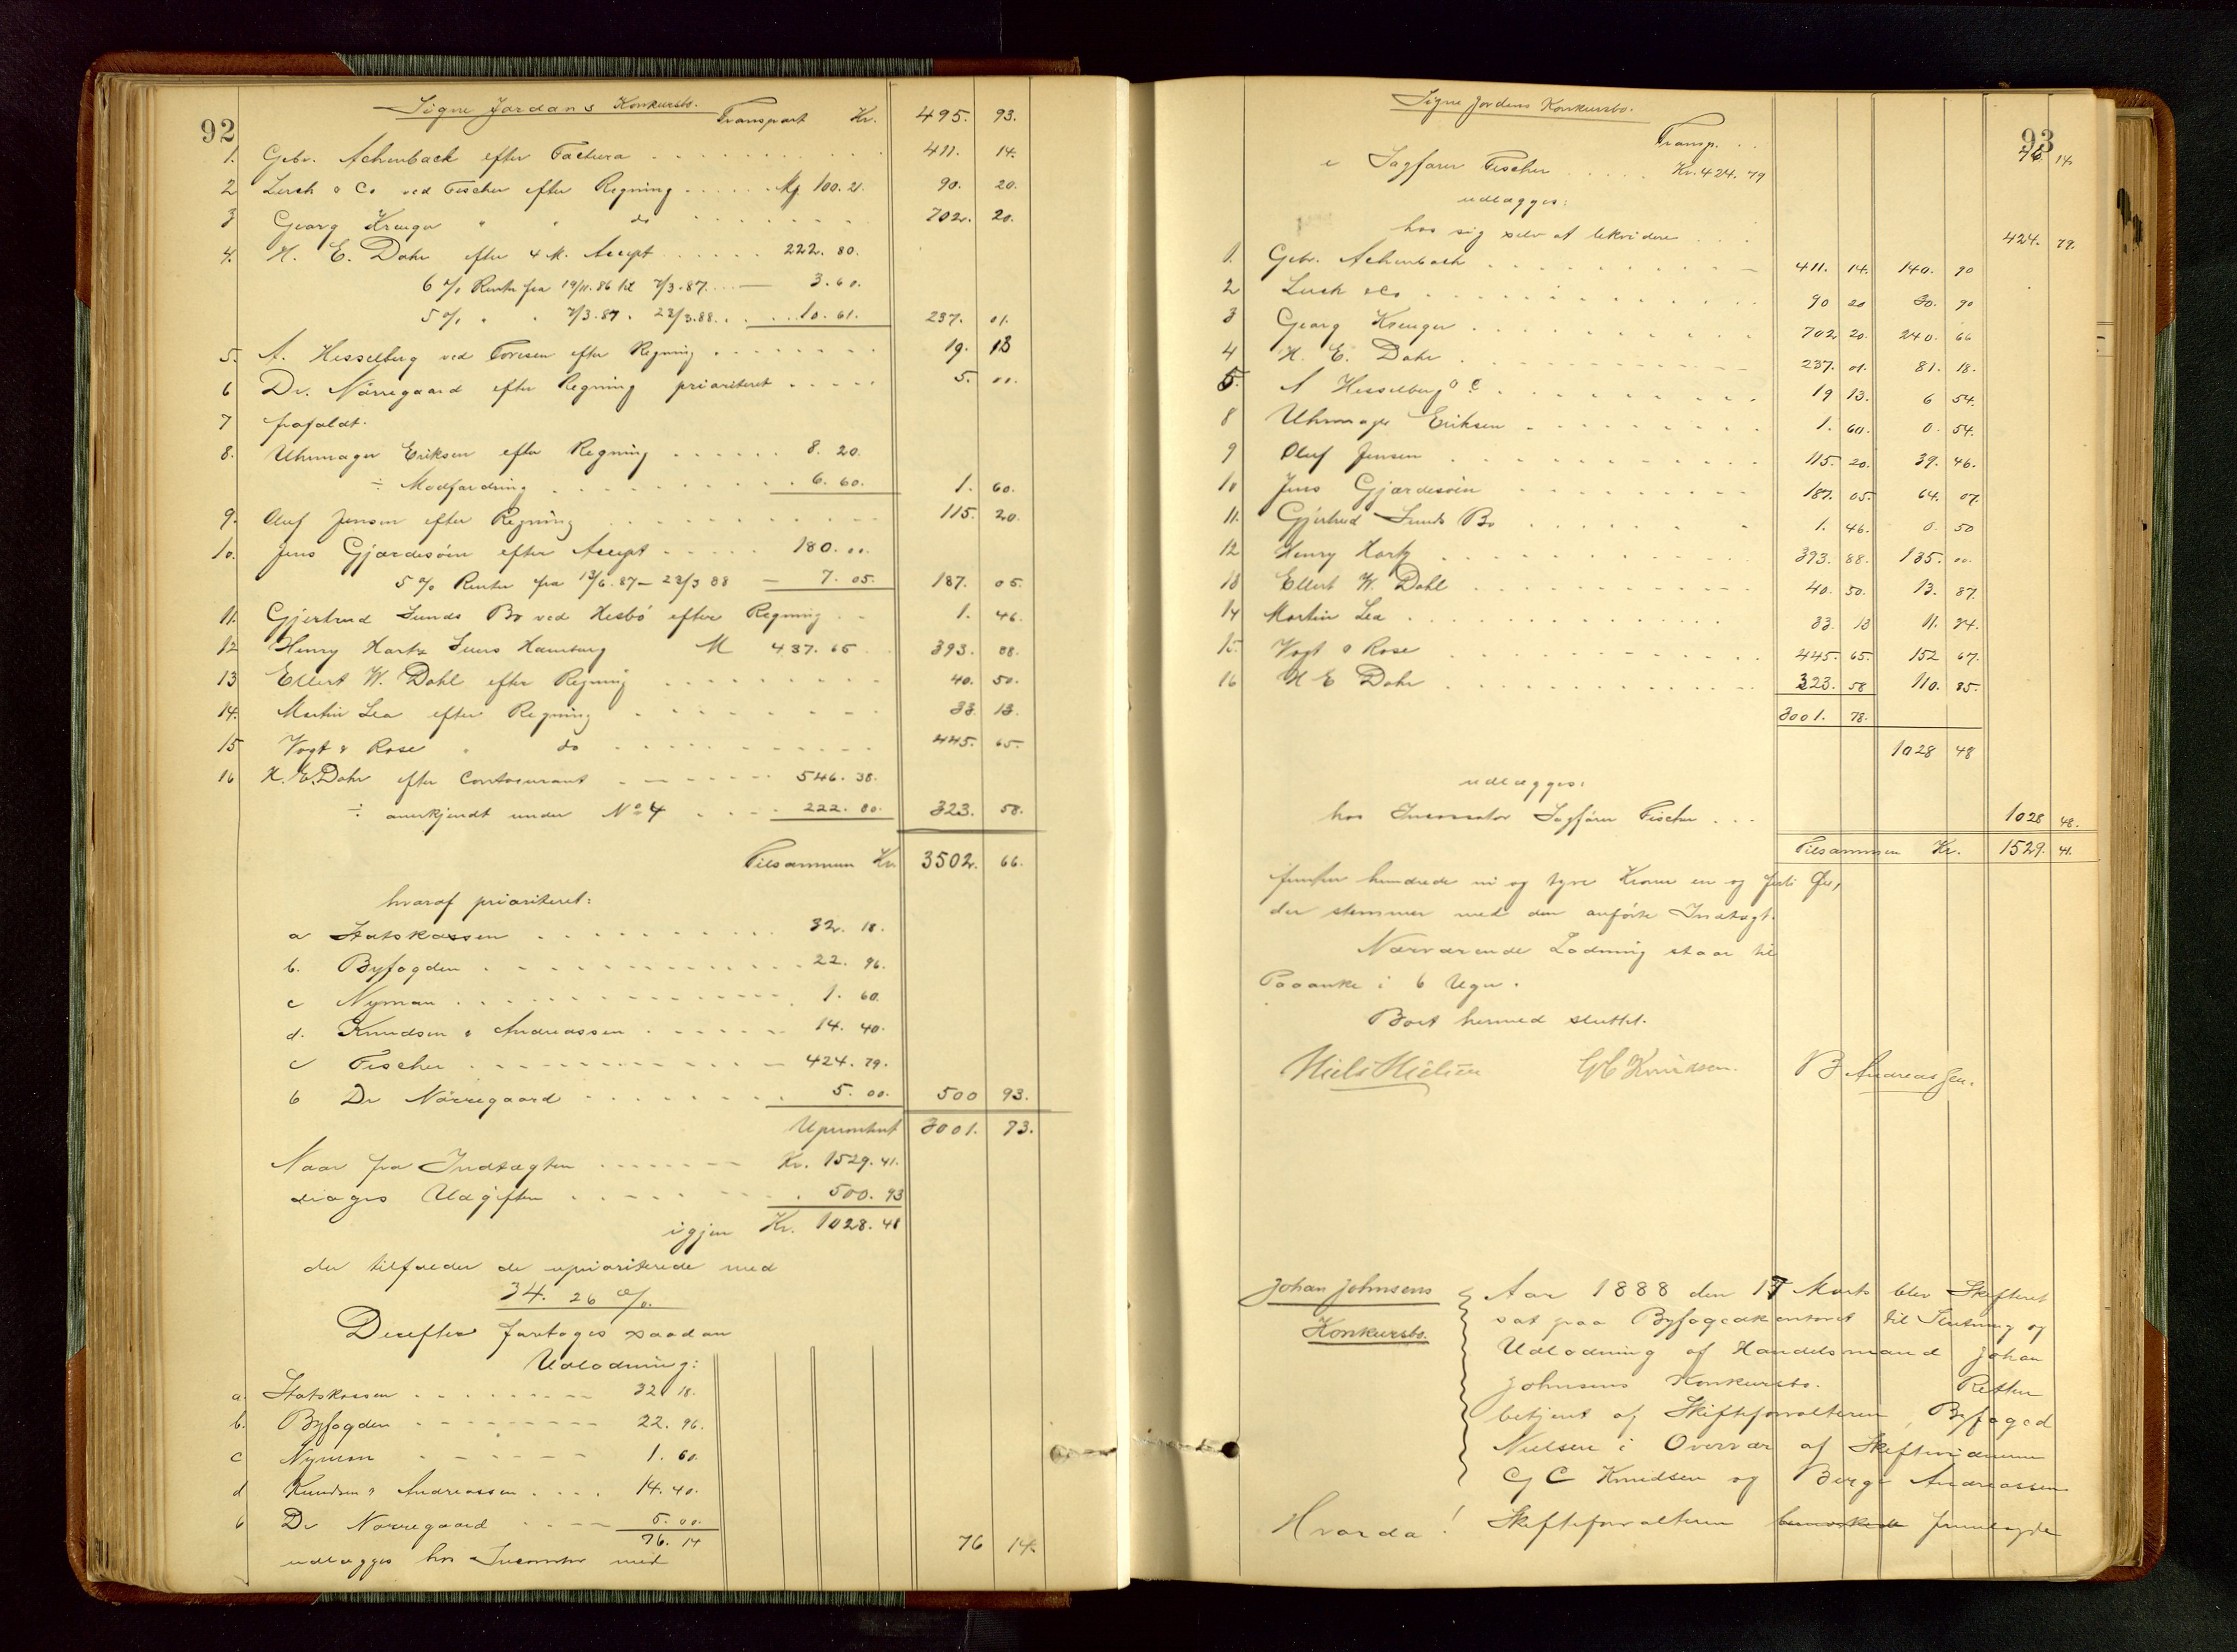 92
Signe Jordans Konkursbo.
Transport Kr. 495. 93.
1. Gebr. Achenbach efter Factura 411. 14.
2 Lersch & Co ved Fischer efter Regning 100.21. 90. 20.
3 Georg Kreuger " " do 702. 20.
4. H. E. Dahr efter 4 M. Accept 222. 80.
6 % Renter fra 19/11.86 til 7/3.87. 3.60.
5 % " " 7/3.87. 23/3.88. 10.61. 237. 01.
5. A. Hesselberg ved Foresen efter Regning 19. 13
6 Dr. Nörregaard efter Regning prioriteret 5. 00.
7 frafaldt.
8. Uhrmager Eriksen efter Regning 8. 20.
÷ Modfordring 6. 60. 1. 60.
9. Oluf Jensen efter Regning 115. 20.
10. Jens Gjærdesöen efter Accept 180. 00.
5 % Renter fra 13/6.87 – 23/3 88 – 7. 05. 187. 05.
11. Gjertrud Sunds Bo ved Hesbö efter Regning 1. 46.
12 Henry Hartz Hamburg M 437. 65 393. 88.
13 Ellert W. Dahl efter Regning 40. 50.
14. Martin Lea efter Regning 33. 13.
15 Vogt & Rose " do 445. 65.
16 H. E. Dahr efter Contocurant 546. 38.
÷ anerkjendt under No 4 222. 80. 323. 58.
Tilsammen Kr 3502. 66.
hvoraf prioriteret:
a Statskassen 32. 18.
b. Byfogden 22. 96.
c Nyman 1. 60.
d. Knudsen & Andreassen 14. 40.
e Fischer 424. 79.
6 Dr Nörregaard 5. 00. 500 93.
Uprioritert 3001. 73.
Naar fra Indtægten Kr. 1529. 41.
drages Udgiften 500. 93
igjen Kr. 1028. 48
der tilfalder de uprioriterede med
34. 26 %.
Derefter foretoges saadan
Udlodning:
a. Statskassen 32 18.
b. Byfogden 22. 96.
c Nyman 1. 60.
d Knudsen & Andreassen 14. 40.
6 Dr Nörregaard 5. 00.
76. 14
udlægges hos Incassator med 76 14.
93
Signe Jordans Konkursbo.
Transp. 76. 14.
e Sagförer Fischer Kr. 424. 79
udlægges:
hos sig selv at likvidere 424. 79.
1. Gebr. Achenbach 411. 14. 140. 90
2 Lersch & Co 90 20 30. 90
3 Georg Kreuger 702 20. 240. 66
4 H. E. Dahr 237. 01. 81. 18.
5. A Hesselberg 19 13. 6 54.
8 Uhrmager Eriksen 1. 60. 0. 54.
9 Oluf Jensen 115. 20. 39. 46.
10 Jens Gjærdesöen 187. 05. 64. 07.
11. Gjertrud Sunds Bo 1. 46. 0. 50
12 Henry Hartz 393. 88. 135. 00.
13 Ellert W. Dahl 40. 50. 13. 87.
14 Martin Lea 33. 13 11. 34.
15. Vogt & Rose 445. 65. 152 67.
16 H E Dahr 323. 58 110. 85.
3001. 73.
1028 48
udlægges:
hos Incassator Sagförer Fischer 1028 48.
Tilsammen Kr. 1529. 41.
femten hundrede ni og tyve Kroner en og forti Öre,
der stemmer med den anförte Indtægt.
Nærværende Lodning staar til
Paaanke i 6 Uger.
Boet hermed sluttet.
Niels Nielsen G C Knudsen. B Andreassen.
Johan Johnsens
Konkursbo.
Aar 1888 den 17 Marts blev Skifteret
sat paa Byfogedkontoret til Slutning og
Udlodning af Handelsmand Johan
Johnsens Konkursbo. Retten
betjent af Skifteforvalteren, Byfoged
Nielsen i Overvær af Skiftevidnerne
G C Knudsen og Berge Andreassen
Hvorda! Skifteforvalteren fremlagde